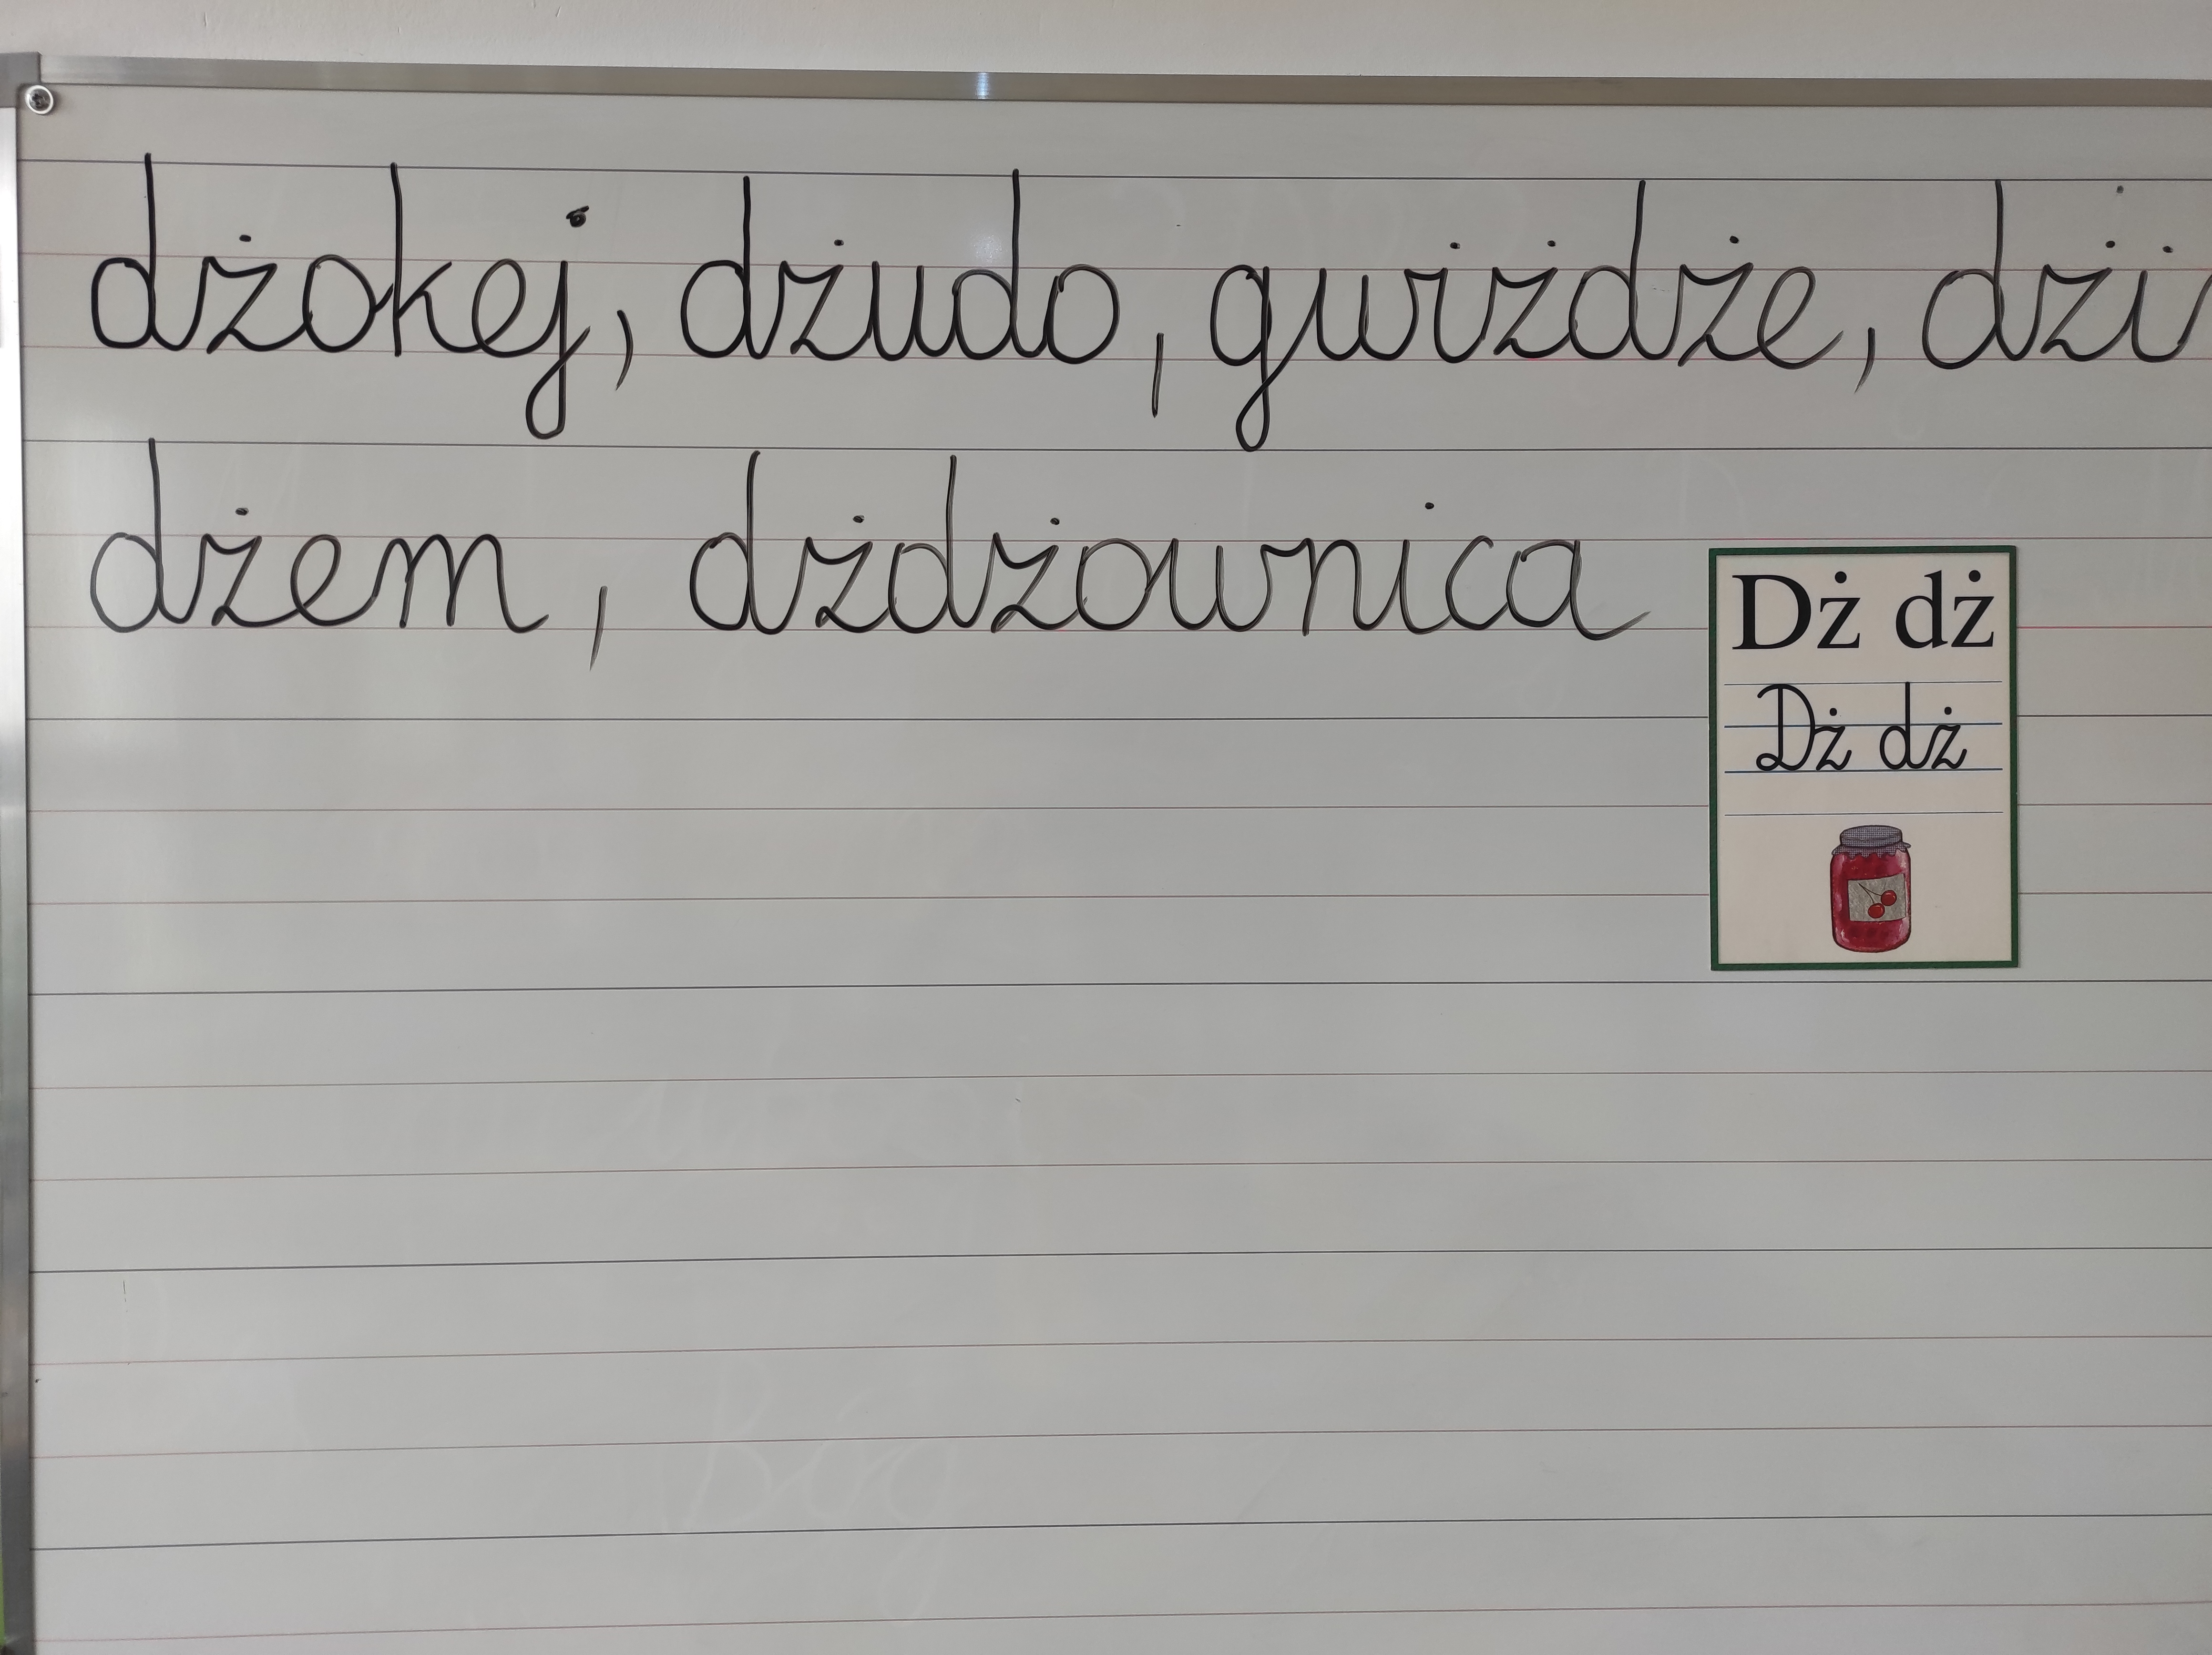 dżokej, dżudo, gwiżdże,
dżem, dżdżownica
Dż dż
Dż dż